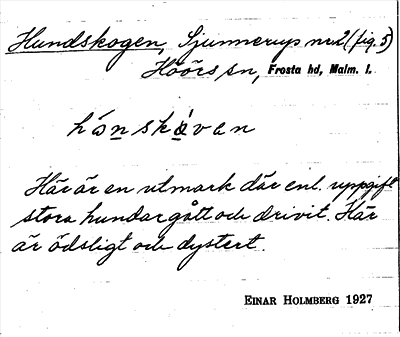 Hundskogen, Sjunnerup nr 2 (fig. 5)
Höörs sn, Frosta hd, Malm. l.
hónskåvan
Här är en utmark där enl. uppgift
stora hundar gått och drivit. Här
är ödsligt och dystert.
EINAR HOLMBERG 1927